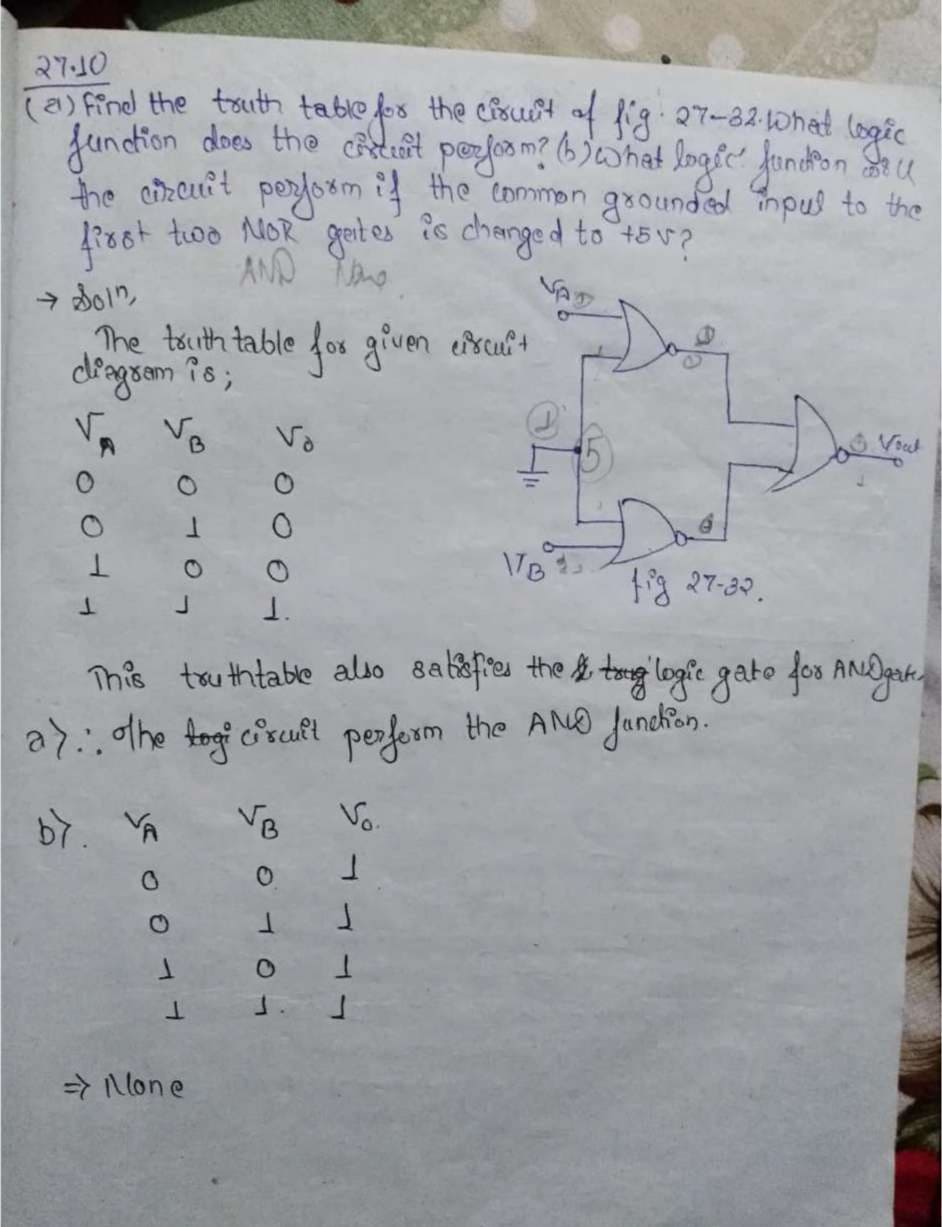 27.10
(a) Find the truth table for the circuit of fig. 27-32. What logic
function does the circuit perform? (b) What logic function will
the circuit perform if the common grounded input to the
first two NOR gates is changed to +5v?
AND None
→ Soln,
The truth table for given circuit
diagram is;
VA VB Vo
0 0 0
0 1 0
1 0 0
1 1 1.
VA
1
5
Vout
VB
fig 27-32.
This truthtable also satisfies the logic gate for AND gate.
a) ∴ The circuit perform the AND function.
b). VA VB Vo.
0 0 1
0 1 1
1 0 1
1 1. 1
⇒ None